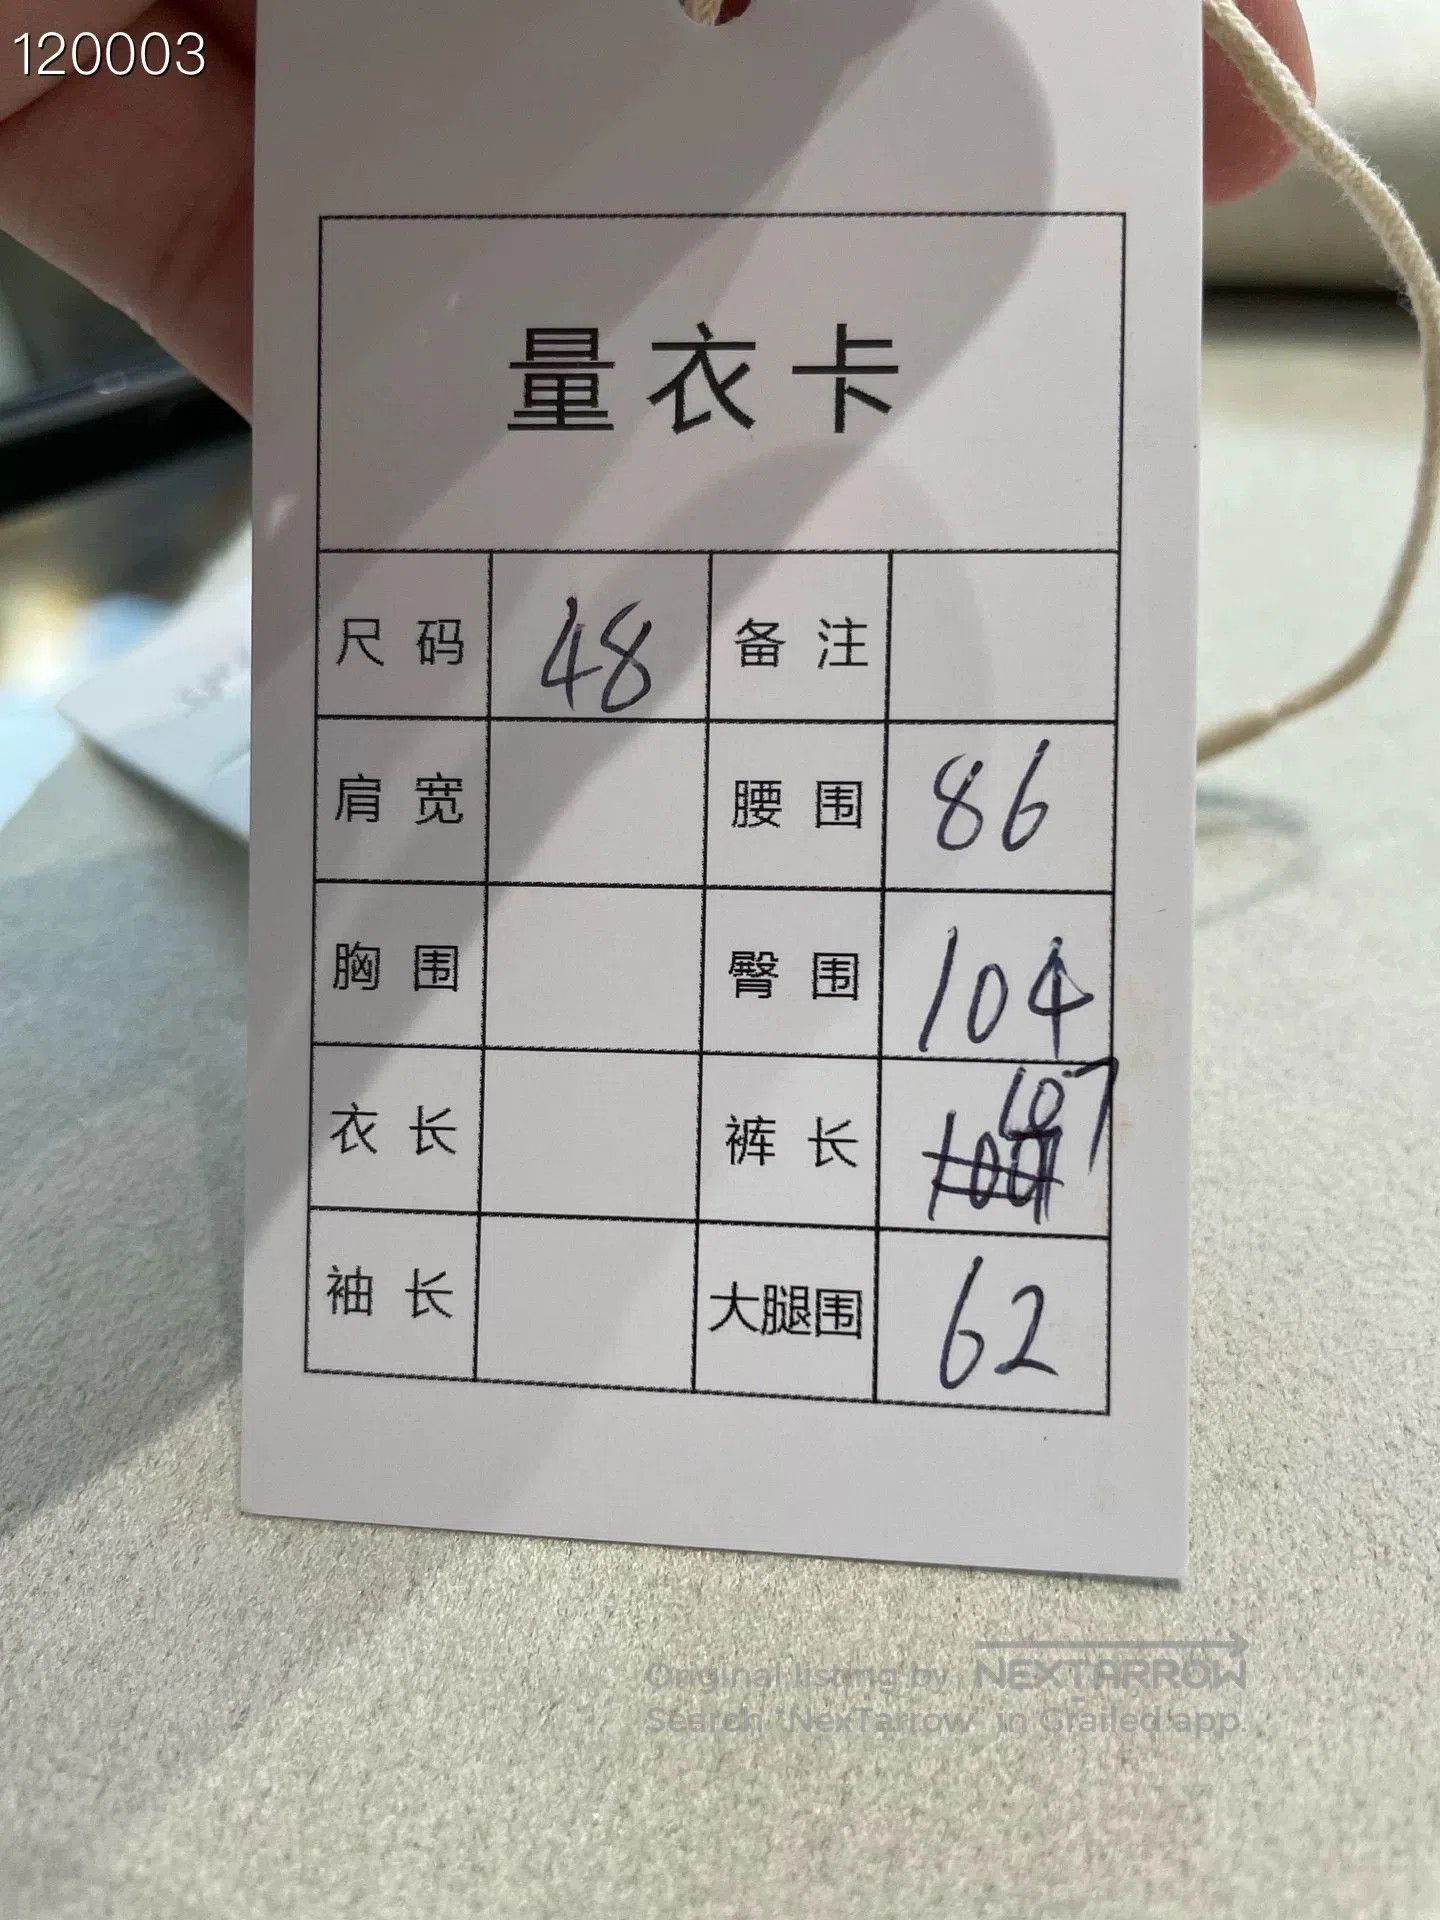 120003
量衣卡
尺码 48 备注
肩宽 腰围 86
胸围 臀围 104
衣长 裤长 107
袖长 大腿围 62
Original listing by NEXTARROW
Search "NexTarrow" in Grailed app.